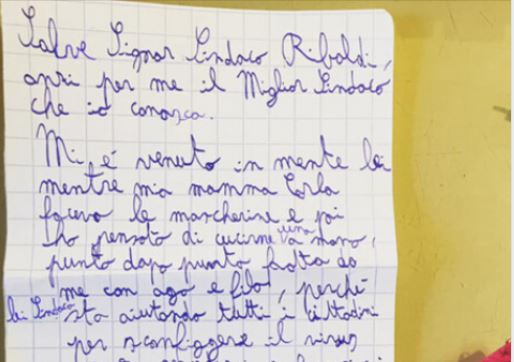 Salve Signor Sindaco Ribaldi,
anzi per me il Miglior Sindaco
che io conosca.
Mi é venuto in mente lei
mentre mia mamma Carla
faceva le mascherine e poi
ho pensato di cucirne una a mano,
punto dopo punto fatta da
me con ago e filo, perché
lei Sindaco sta aiutando tutti i cittadini
per sconfiggere il virus